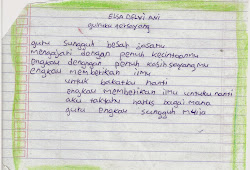 ELSA DELVI AVI
guruku tersayang
guru sungguh besar jasamu
mengajari dengan penuh kecintaanmu
engkau dengan penuh kasihsayangmu
engkau memberikan ilmu
untuk bakatku nanti
engkau memberikan ilmu untukku nanti
aku taktahu harus bagai mana
guru engkau sungguh mulia